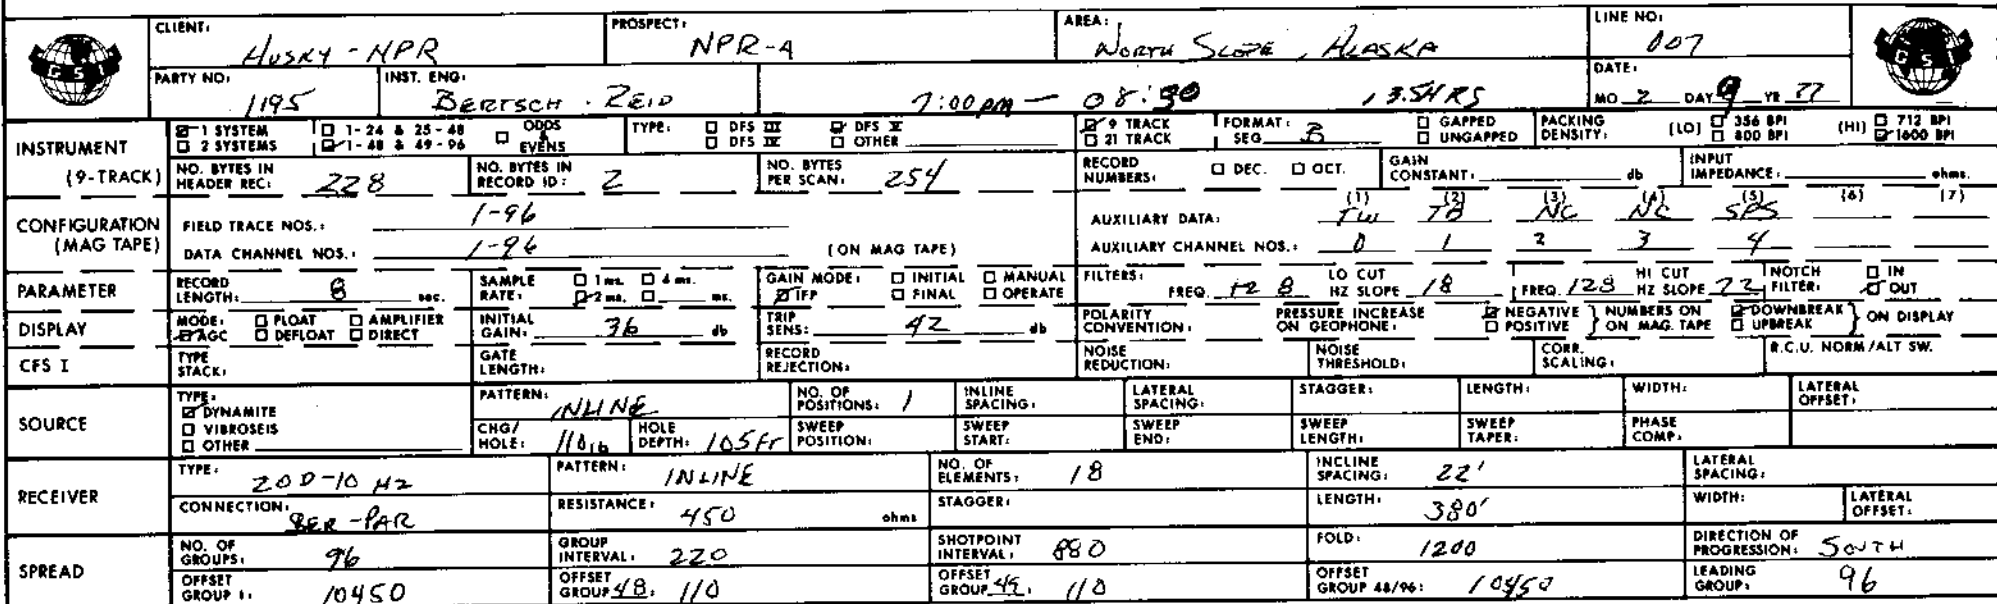 CLIENT: HUSKY - NPR PROSPECT: NPR-A AREA: NORTH SLOPE, ALASKA LINE NO: 007
GSI GSI
PARTY NO: 1195 INST. ENG: BERTSCH - REID 7:00 PM — 08:30 13.5 HRS DATE: MO 2 DAY 9 YR 77
INSTRUMENT (9-TRACK) ☑ 1 SYSTEM ☐ 2 SYSTEMS ☐ 1-24 & 25-48 ☑ 1-48 & 49-96 ☐ ODDS & EVENS TYPE: ☐ DFS III ☐ DFS IV ☑ DFS V ☐ OTHER ☑ 9 TRACK ☐ 21 TRACK FORMAT: SEG B ☐ GAPPED ☐ UNGAPPED PACKING DENSITY: (LO) ☐ 356 BPI ☐ 800 BPI (HI) ☐ 712 BPI ☑ 1600 BPI
NO. BYTES IN HEADER REC: 228 NO. BYTES IN RECORD ID: 2 NO. BYTES PER SCAN: 254 RECORD NUMBERS: ☐ DEC. ☐ OCT. GAIN CONSTANT: db INPUT IMPEDANCE: ohms.
CONFIGURATION (MAG TAPE) FIELD TRACE NOS.: 1-96 AUXILIARY DATA: (1) TW (2) TB (3) NC (4) NC (5) SPS (6) (7)
DATA CHANNEL NOS.: 1-96 (ON MAG TAPE) AUXILIARY CHANNEL NOS.: 0 1 2 3 4
PARAMETER RECORD LENGTH: 8 sec. SAMPLE RATE: ☐ 1 ms. ☐ 4 ms. ☑ 2 ms. ☐ ms. GAIN MODE: ☐ INITIAL ☐ MANUAL ☑ IFP ☐ FINAL ☐ OPERATE FILTERS: FREQ. 8 LO CUT HZ SLOPE 18 FREQ. 128 HI CUT HZ SLOPE 72 NOTCH FILTER: ☐ IN ☑ OUT
DISPLAY MODE: ☐ FLOAT ☐ AMPLIFIER ☑ AGC ☐ DEFLOAT ☐ DIRECT INITIAL GAIN: 36 db TRIP SENS: 42 db POLARITY CONVENTION: PRESSURE INCREASE ON GEOPHONE: ☑ NEGATIVE ☐ POSITIVE } NUMBERS ON MAG. TAPE ☑ DOWNBREAK ☐ UPBREAK } ON DISPLAY
CFS I TYPE STACK: GATE LENGTH: RECORD REJECTION: NOISE REDUCTION: NOISE THRESHOLD: CORR. SCALING: R.C.U. NORM/ALT SW.
SOURCE TYPE: ☑ DYNAMITE ☐ VIBROSEIS ☐ OTHER PATTERN: INLINE NO. OF POSITIONS: 1 INLINE SPACING: LATERAL SPACING: STAGGER: LENGTH: WIDTH: LATERAL OFFSET:
CHG/HOLE: 110 lb HOLE DEPTH: 105 FT SWEEP POSITION: SWEEP START: SWEEP END: SWEEP LENGTH: SWEEP TAPER: PHASE COMP:
RECEIVER TYPE: 20D-10 HZ PATTERN: INLINE NO. OF ELEMENTS: 18 INCLINE SPACING: 22' LATERAL SPACING:
CONNECTION: SER-PAR RESISTANCE: 450 ohms STAGGER: LENGTH: 380' WIDTH: LATERAL OFFSET:
SPREAD NO. OF GROUPS: 96 GROUP INTERVAL: 220 SHOTPOINT INTERVAL: 880 FOLD: 1200 DIRECTION OF PROGRESSION: SOUTH
OFFSET GROUP 1: 10450 OFFSET GROUP 48: 110 OFFSET GROUP 49: 110 OFFSET GROUP 48/96: 10450 LEADING GROUP: 96